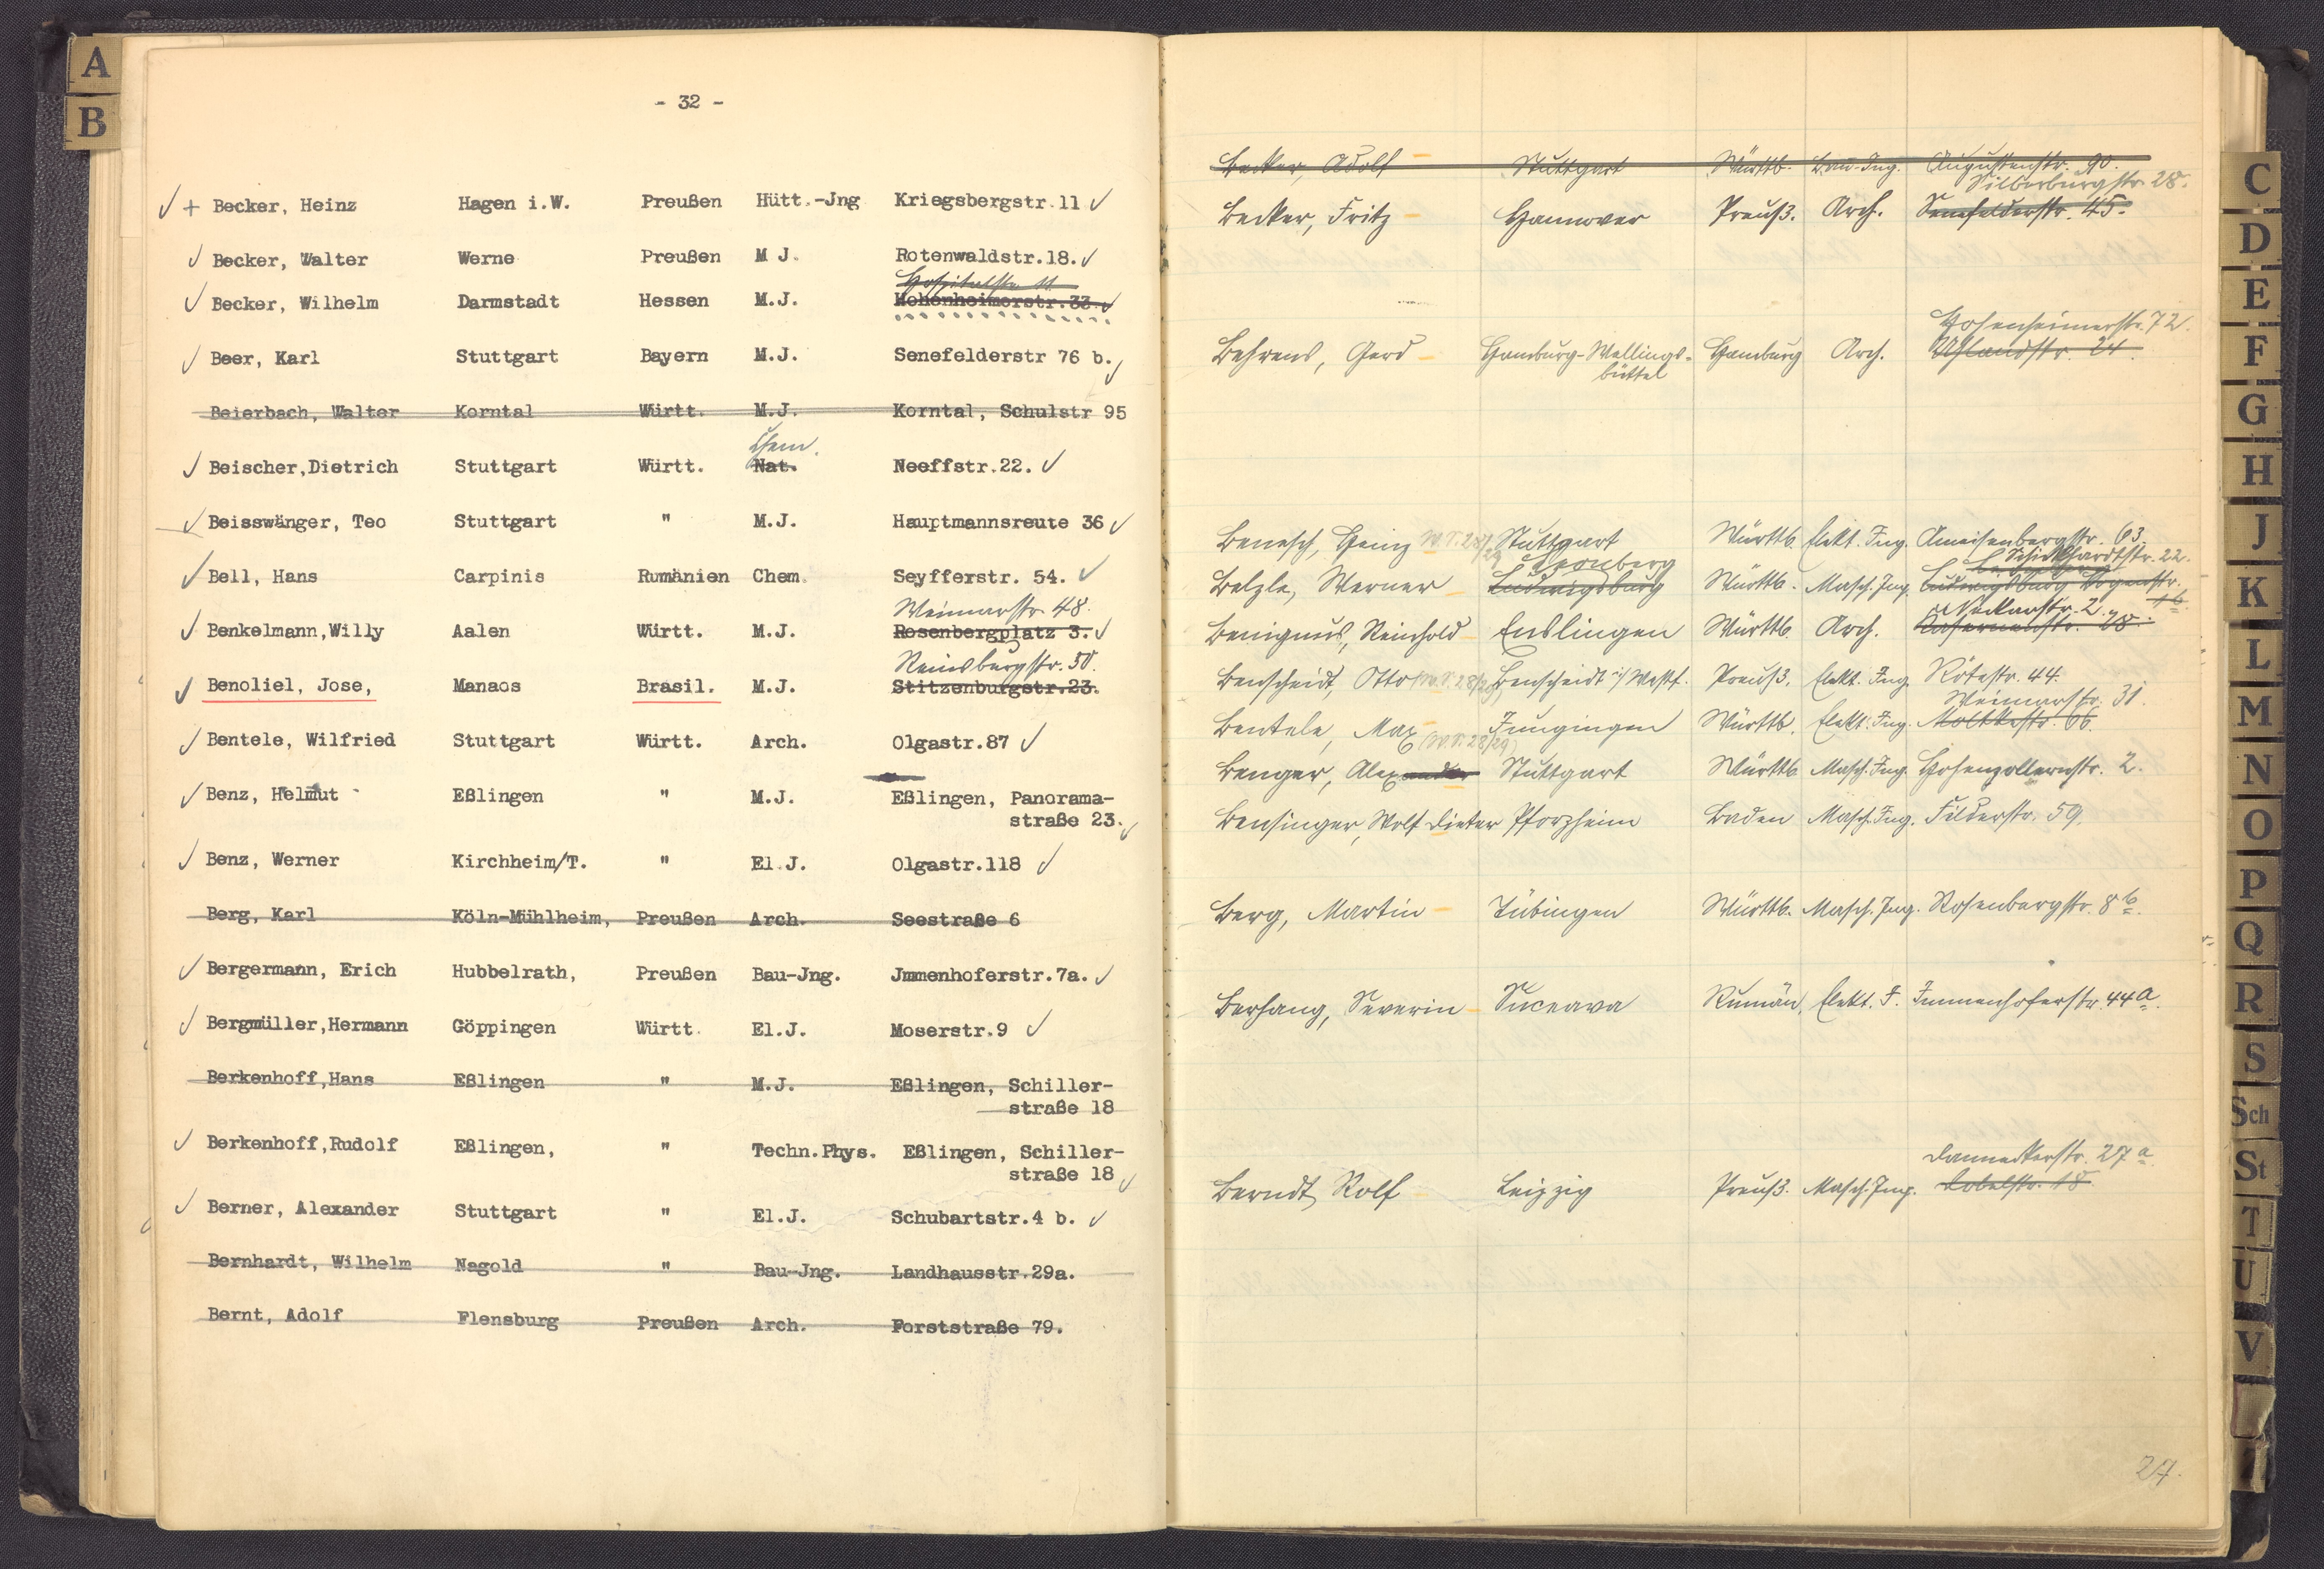 A
B
- 32 -
✓ + Becker, Heinz Hagen i.W. Preußen Hütt.-Jng Kriegsbergstr.11 ✓
✓ Becker, Walter Werne Preußen M J. Rotenwaldstr.18. ✓
Hospitalstr. 11
✓ Becker, Wilhelm Darmstadt Hessen M.J. Hohenheimerstr.33. ✓
✓ Beer, Karl Stuttgart Bayern M.J. Senefelderstr 76 b. ✓
Beierbach, Walter Korntal Württ. M.J. Korntal, Schulstr 95
Chem.
✓ Beischer,Dietrich Stuttgart Württ. Nat. Neeffstr.22. ✓
✓ Beisswänger, Teo Stuttgart " M.J. Hauptmannsreute 36 ✓
✓ Bell, Hans Carpinis Rumänien Chem. Seyfferstr. 54. ✓
Weimarstr. 48.
✓ Benkelmann,Willy Aalen Württ. M.J. Rosenbergplatz 3. ✓
Reinsburgstr. 50.
✓ Benoliel, Jose, Manaos Brasil. M.J. Stitzenburgstr.23.
✓ Bentele, Wilfried Stuttgart Württ. Arch. Olgastr.87 ✓
✓ Benz, Helmut Eßlingen " M.J. Eßlingen, Panorama-
straße 23. ✓
✓ Benz, Werner Kirchheim/T. " El.J. Olgastr.118 ✓
Berg, Karl Köln-Mühlheim, Preußen Arch. Seestraße 6
✓ Bergermann, Erich Hubbelrath, Preußen Bau-Jng. Jmmenhoferstr.7a. ✓
✓ Bergmüller,Hermann Göppingen Württ. El.J. Moserstr.9 ✓
Berkenhoff,Hans Eßlingen " M.J. Eßlingen, Schiller-
straße 18
✓ Berkenhoff,Rudolf Eßlingen, " Techn.Phys. Eßlingen, Schiller-
straße 18 ✓
✓ Berner, Alexander Stuttgart " El.J. Schubartstr.4 b. ✓
Bernhardt, Wilhelm Nagold " Bau-Jng. Landhausstr.29a.
Bernt, Adolf Flensburg Preußen Arch. Forststraße 79.
Becker, Adolf Stuttgart Württb. Bau-Ing. Augustenstr. 90.
Silberburgstr. 28.
Becker, Fritz Hannover Preuß. Arch. Senefelderstr. 45.
Hohenheimerstr. 72.
Behrens, Gerd Hamburg-Wellings- Hamburg Arch. Uhlandstr. 24.
büttel
Benesch, Heinz W.S. 28/29 Stuttgart Württb. Elekt. Ing. Ameisenbergstr. 63.
Leonberg Schickhardtstr. 22.
Belzle, Werner Ludwigsburg Württb. Masch. Ing. Ludwigsburg
Neckarstr. 2.
Benignus, Reinhold Enslingen Württb. Arch. Kasernenstr. 28.
Benscheidt, Otto (W.S. 28/29) Benscheidt i/ Westf. Preuß. Elekt. Ing. Rötestr. 44.
Weimarstr. 31.
Bentele, Max Jungingen Württb. Elekt. Ing. Moltkestr. 66.
(W.S. 28/29)
Benger, Alexander Stuttgart Württb. Masch. Ing. Hohenzollernstr. 2.
Bensinger, Wolf Dieter Pforzheim Baden Masch. Ing. Filderstr. 59.
Berg, Martin Tübingen Württb. Masch. Ing. Rosenbergstr. 8 b.
Berhang, Severin Suceava Rumän. Elekt. I. Immenhoferstr. 44 a.
Danneckerstr. 27 a.
Berndt, Rolf Leipzig Preuß. Masch. Ing. Kobelstr. 18
27.
C
D
E
F
G
H
J
K
L
M
N
O
P
Q
R
S
Sch
St
T
U
V